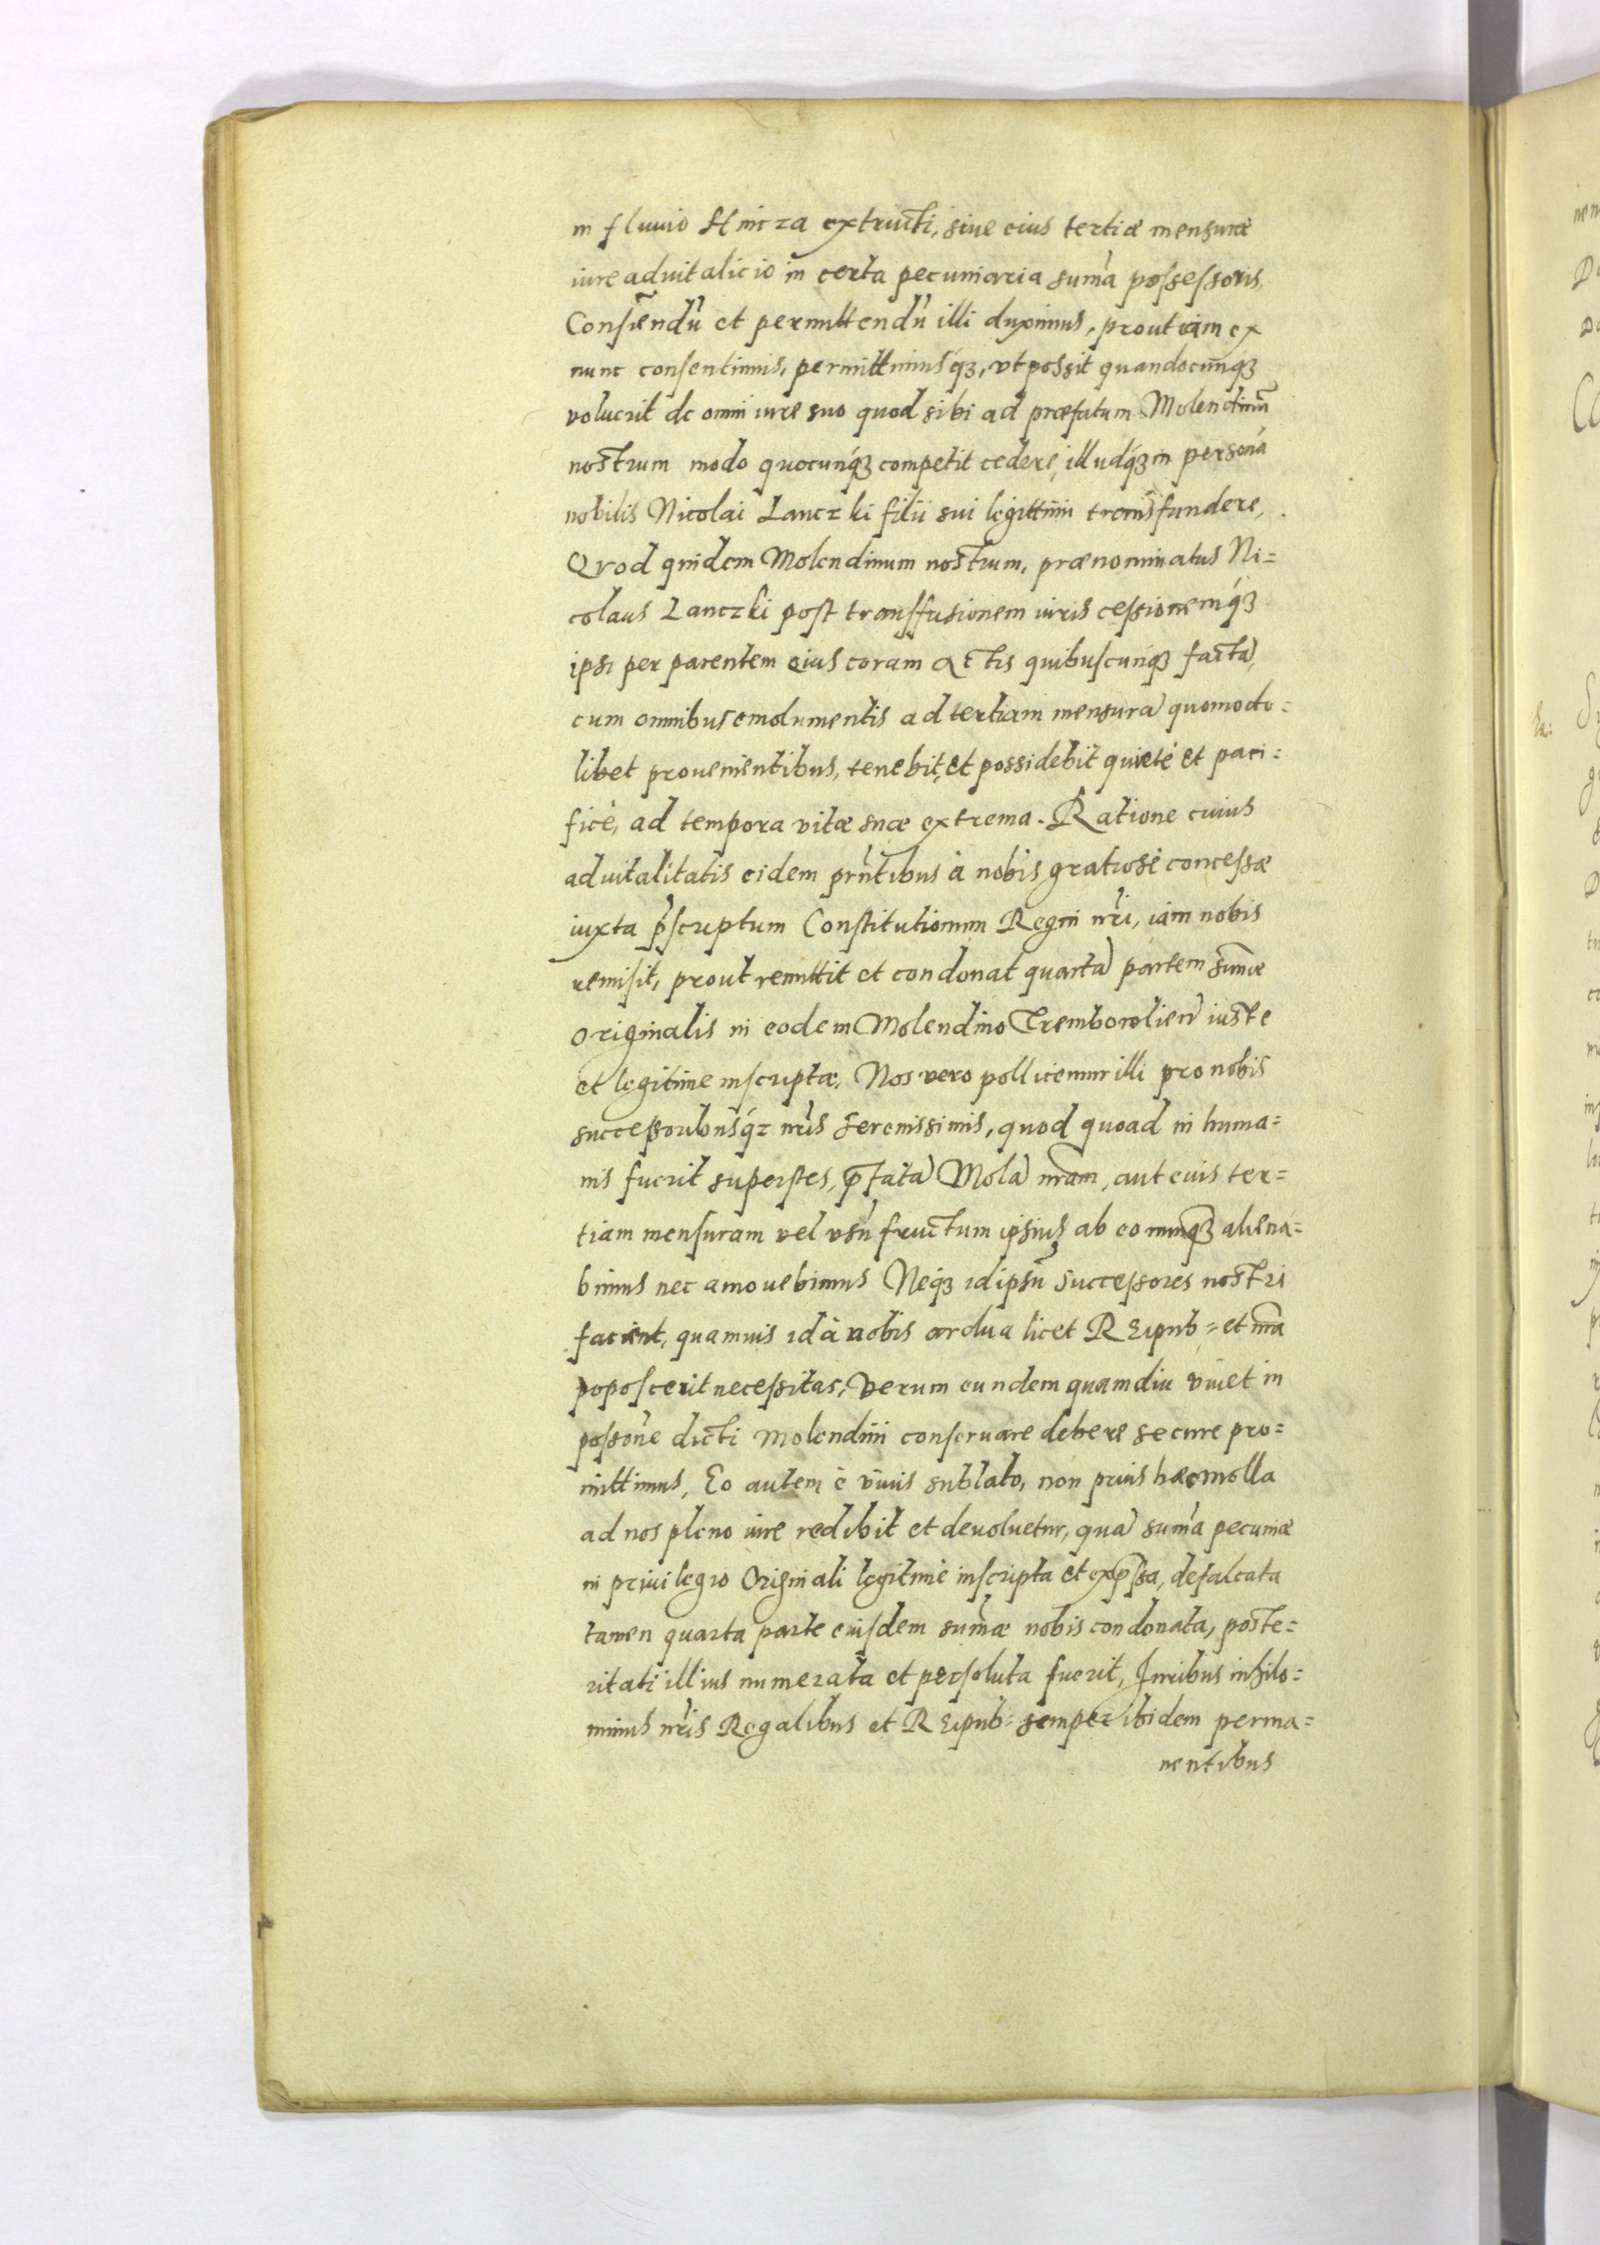 in fluuio Hnicza extructi, siue eius tertiæ mensuræ
iure aduitalicio in certa pecuniaria sum̃a possessoris,
Consẽiendũ et permittendũ illi duximus, prout iam ex
nunc consentimus, permittimusq́ȝ, vt possit quandocunq́ȝ
voluerit de omni iure suo quod sibi ad præfatum Molendinũ
nostrum modo quocunq́ȝ competit cedere, illudq́ȝ in personã
nobilis Nicolai Lanczki filii sui legittimi transfundere,
Qvod quidem Molendinum nostrum, prænominatus Ni=
colaus Lanczki post transfusionem iuris cessionemq́ȝ
ipsi per parentem eius coram Actis quibuscunq́ȝ factã,
cum omnibus emolumentis ad tertiam mensurã quomodo=
libet prouenientibus, tenebit, et possidebit quietè et paci=
ficè, ad tempora vitæ suæ extrema. Ratione cuius
aduitalitatis eidem prñtibus à nobis gratiosè concessæ
iuxta p̃scriptum Constitutionum Regni nr̃i, iam nobis
remisit, prout remittit et condonat quartã partem sum̃æ
originalis in eodem Molendino Trembowlieñ iuste
et legitime inscriptæ, Nos vero pollicemur illi pro nobis
successoribusq́ȝ nr̃is serenissimis, quod quoad in huma=
nis fuerit superstes, p̃fatã Molã nr̃am, aut eius ter=
tiam mensuram vel vsũfructum ipsius ab eo nunq̃ȝ aliena=
bimus nec amouebimus Neq́ȝ id ipsũ successores nostri
facient, quamuis id à nobis ardua licet REipub= et ma
poposcerit necessitas, Verum eundem quamdiu viuet in
posson̄e dicti Molendini conseruare debere secure pro=
mittimus, Eo autem è viuis sublato, non prius hæc molla
ad nos pleno iure redibit et deuoluetur, quã sum̃a pecuniæ
in priuilegio Originali legitimè inscripta et exp̃ssa, defalcata
tamen quarta parte eiusdem sum̃æ nobis condonata, poste=
ritati illius numerata et persoluta fuerit, Juribus inhilo=
minus nr̃is Regalibus et REipub= semper ibidem perma=
nentibus